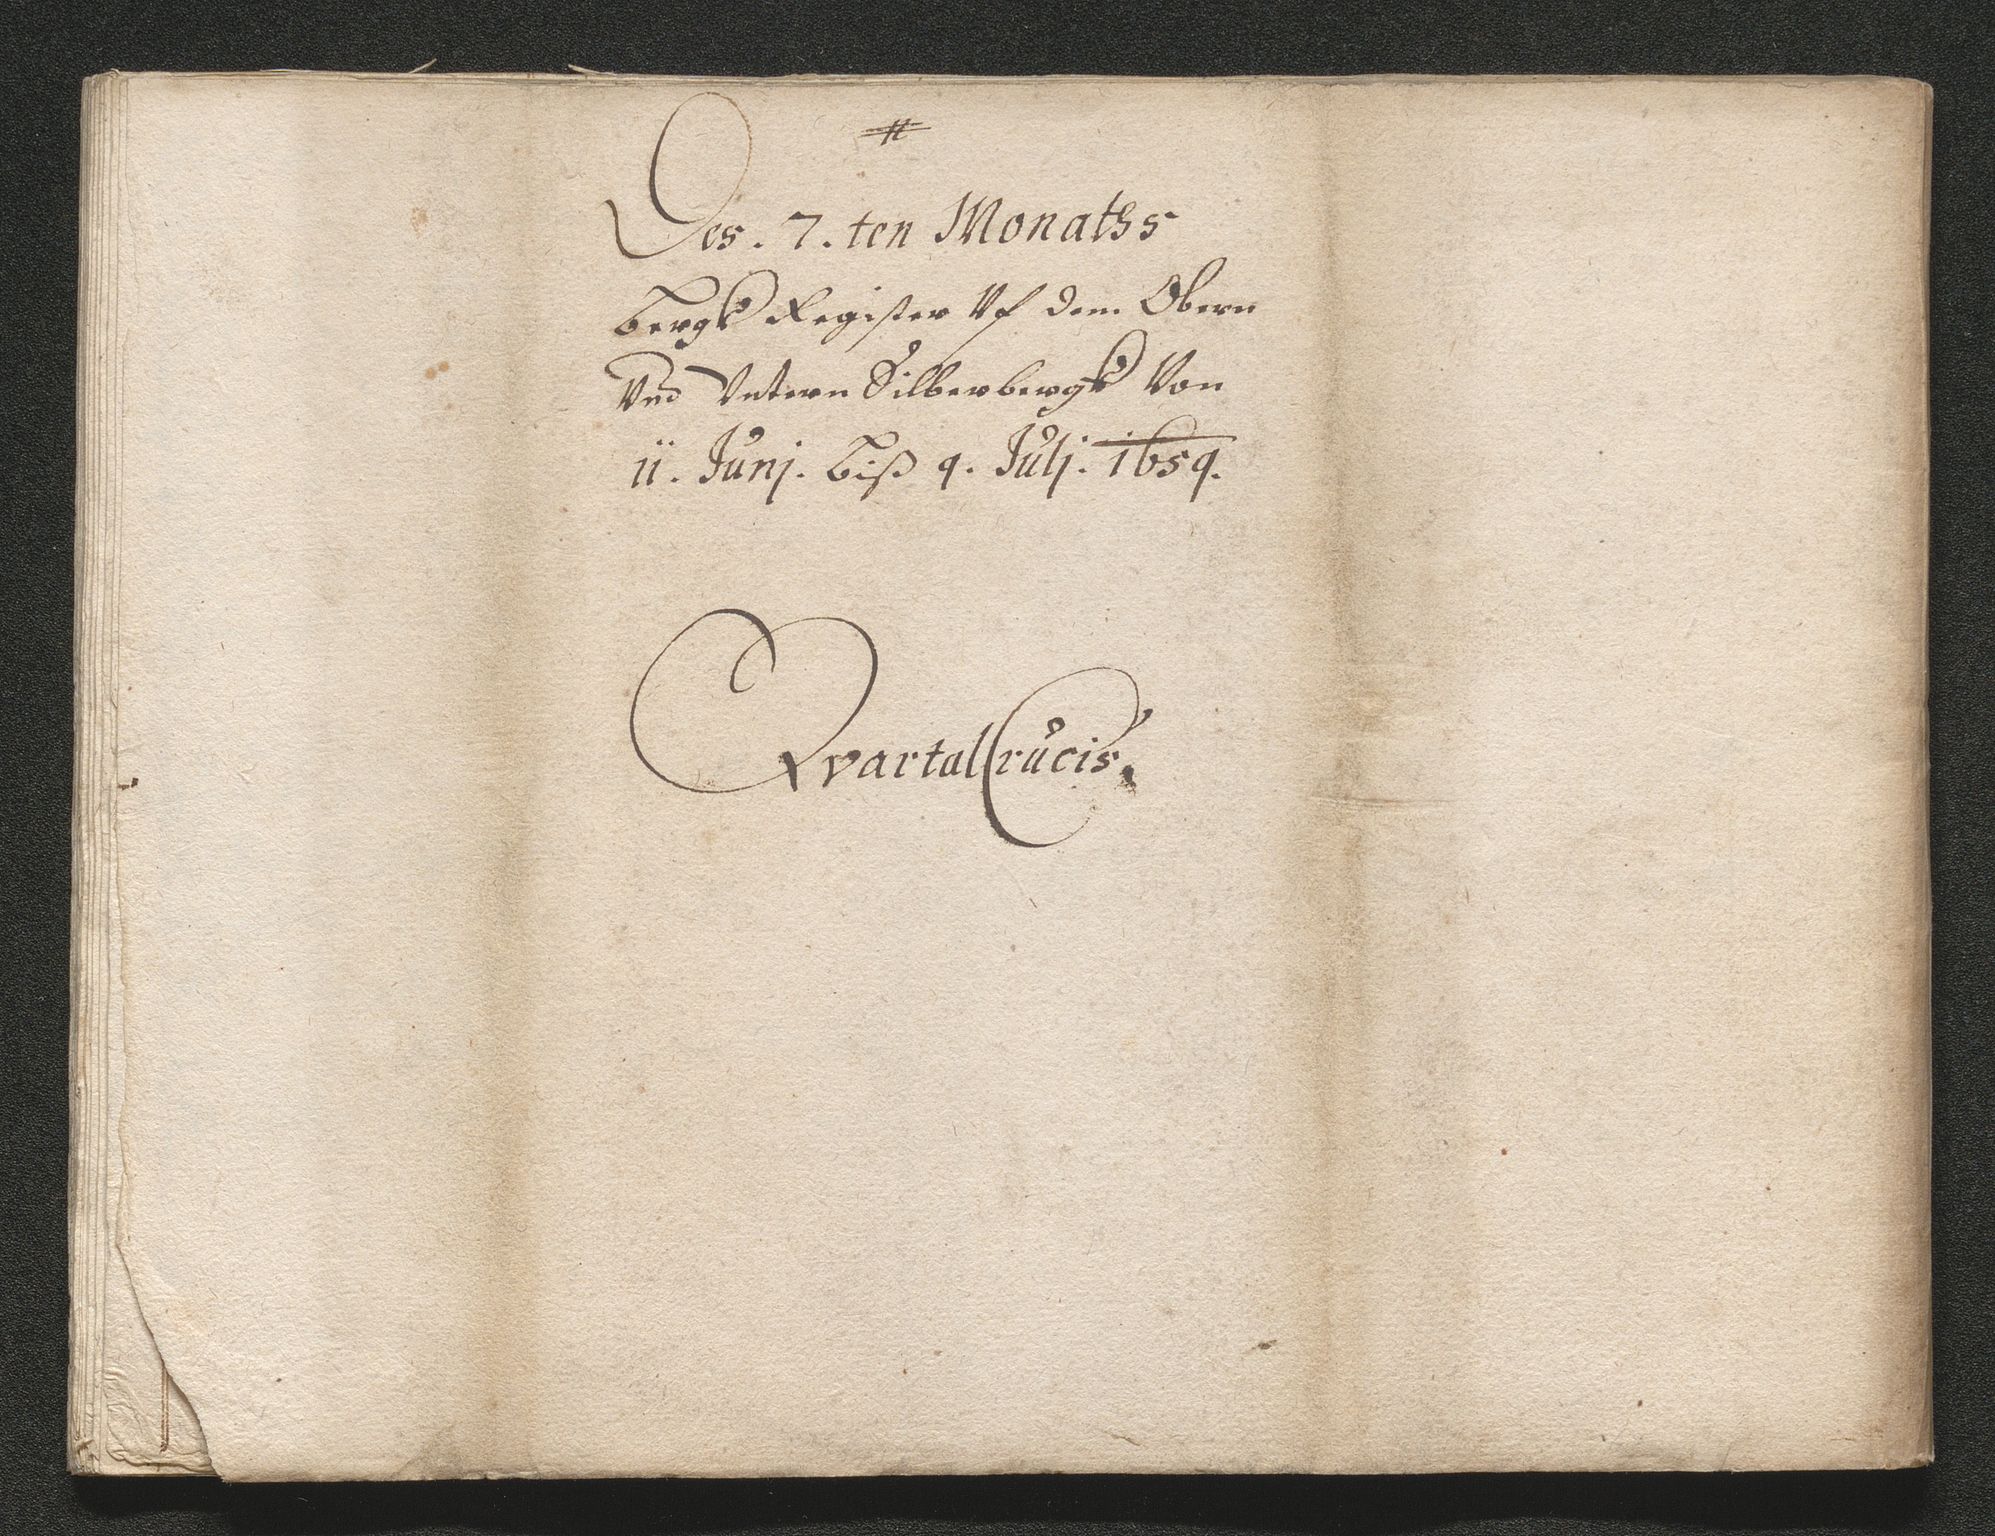 Des. 7. ten Monaths
Bergk Register Vf dem Obern
Vnd Vntern Silberbergk Von
11. Junj. biß 9. Julj. 1659.
Qvartal Crucis.